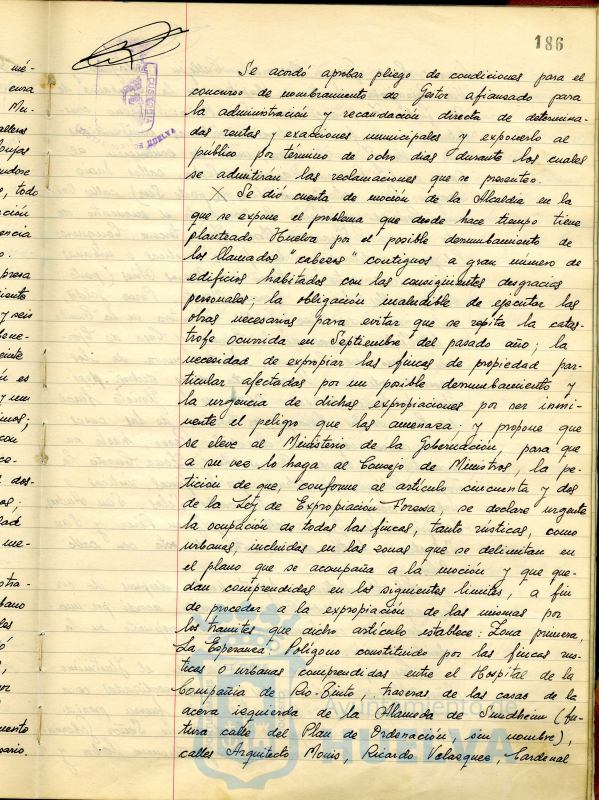 186
Se acordó aprobar pliego de condiciones para el
concurso de nombramiento de Gestor afianzado para
la administración y recaudación directa de determina-
das rentas y exacciones municipales y exponerlo al
público por término de ocho días durante los cuales
se admitirán las reclamaciones que se presenten.
Se dió cuenta de moción de la Alcaldía en la
que se expone el problema que desde hace tiempo tiene
planteado Huelva por el posible derrumbamiento de
los llamados "cabezos" contiguos a gran número de
edificios habitados con las consiguientes desgracias
personales; la obligación ineludible de ejecutar las
obras necesarias para evitar que se repita la catas-
trofe ocurrida en Septiembre del pasado año; la
necesidad de expropiar las fincas de propiedad par-
ticular afectadas por un posible derrumbamiento y
la urgencia de dichas expropiaciones por ser inmi-
nente el peligro que las amenaza: y propone que
se eleve al Ministerio de la Gobernación, para que
a su vez lo haga al Consejo de Ministros, la pe-
tición de que, conforme al artículo cincuenta y dos
de la Ley de Expropiación Forzosa, se declare urgente
la ocupación de todas las fincas, tanto rústicas, como
urbanas, incluidas en las zonas que se delimitan en
el plano que se acompaña a la moción y que que-
dan comprendidas en los siguientes límites, a fin
de proceder a la expropiación de las mismas por
los trámites que dicho artículo establece: Zona primera,
La Esperanza: Polígono constituido por las fincas rús-
ticas o urbanas comprendidas entre el Hospital de la
Compañía de Rio-Tinto, traseras de las casas de la
acera izquierda de la Alameda de Sundheim (fu-
tura calle del Plan de Ordenación, sin nombre),
calles Arquitecto Monis, Ricardo Velazquez, Cardenal
Ayuntamiento de
HUELVA